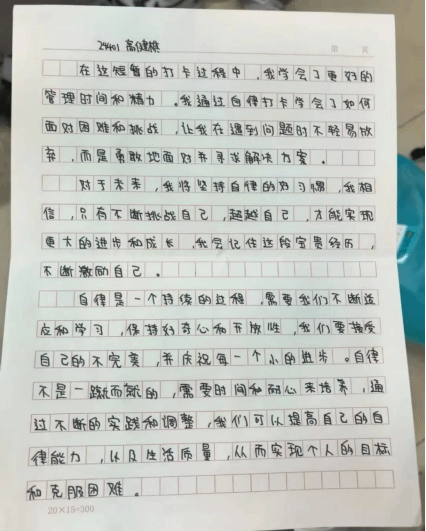 24401 高健棋
第 页
在这短暂的打卡过程中，我学会了更好的
管理时间和精力。我通过自律打卡学会了如何
面对困难和挑战，让我在遇到问题时不轻易放
弃，而是勇敢地面对并寻求解决方案。
对于未来，我将坚持自律的好习惯，我相
信，只有不断挑战自己，超越自己，才能实现
更大的进步和成长，我会记住这段宝贵经历，
不断激励自己。
自律是一个持续的过程，需要我们不断适
应和学习，保持好奇心和开放性，我们要接受
自己的不完美，并庆祝每一个小的进步。自律
不是一蹴而就的，需要时间和耐心来培养，通
过不断的实践和调整，我们可以提高自己的自
律能力，以及生活质量，从而实现个人的目标
和克服困难。
20×15=300